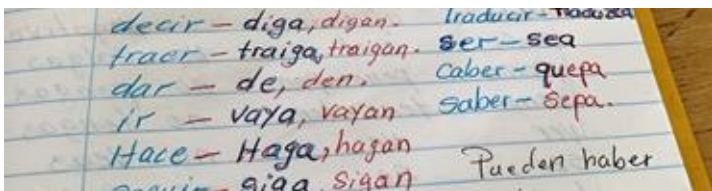 decir - diga, digan.
traer - traiga, traigan.
dar - de, den.
ir - vaya, vayan
Hace - Haga, hagan
siga, sigan
traducir - traduzca
ser - sea
caber - quepa
saber - sepa.
Pueden haber